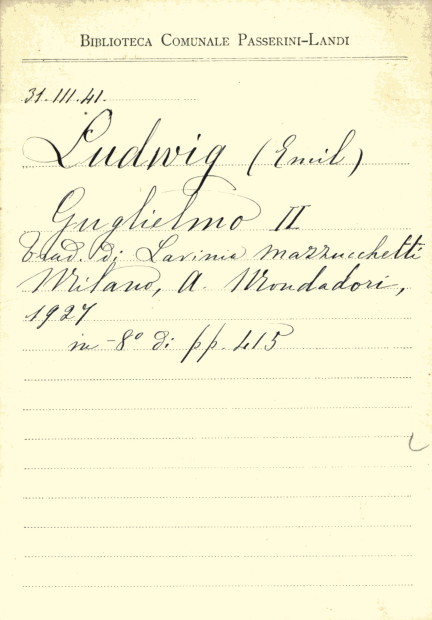 Biblioteca Comunale Passerini-Landi
31.III.41.
Ludwig (Emil)
Guglielmo II
Trad. di Lavinia Mazzucchetti
Milano, A. Mondadori,
1927
in-8° di pp. 415